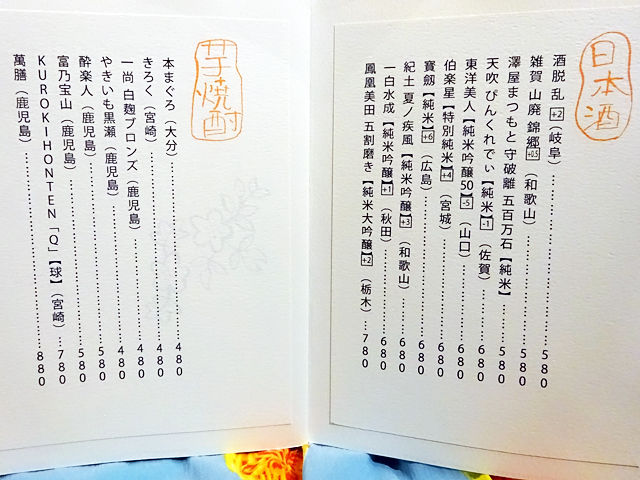 日本酒
酒脱 乱 +2（岐阜）…580
雑賀 山廃 錦郷 +0.5（和歌山）…580
澤屋まつもと 守破離 五百万石【純米】…580
天吹 ぴんくれでぃ【純米】-1（佐賀）…680
東洋美人【純米吟醸50】-5（山口）…680
伯楽星【特別純米】+4（宮城）…680
寳劔【純米】+6（広島）…680
紀土 夏ノ疾風【純米吟醸】+3（和歌山）…680
一白水成【純米吟醸】+1（秋田）…680
鳳凰美田 五割磨き【純米大吟醸】+2（栃木）…780
芋焼酎
本まぐろ（大分）…480
きろく（宮崎）…480
一尚 白麹ブロンズ（鹿児島）…480
やきいも黒瀬（鹿児島）…580
酔楽人（鹿児島）…580
富乃宝山（鹿児島）…780
KUROKIHONTEN「Q」【球】（宮崎）…880
萬膳（鹿児島）…880